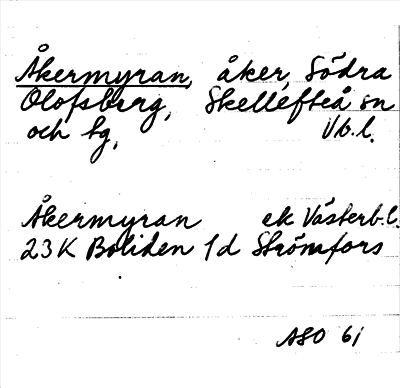 Åkermyran, åker, Södra
Olofsberg, Skellefteå sn
och by, Vb.l.
Åkermyran ek Västerb.l.
23K Boliden 1d Strömfors
ASO 61